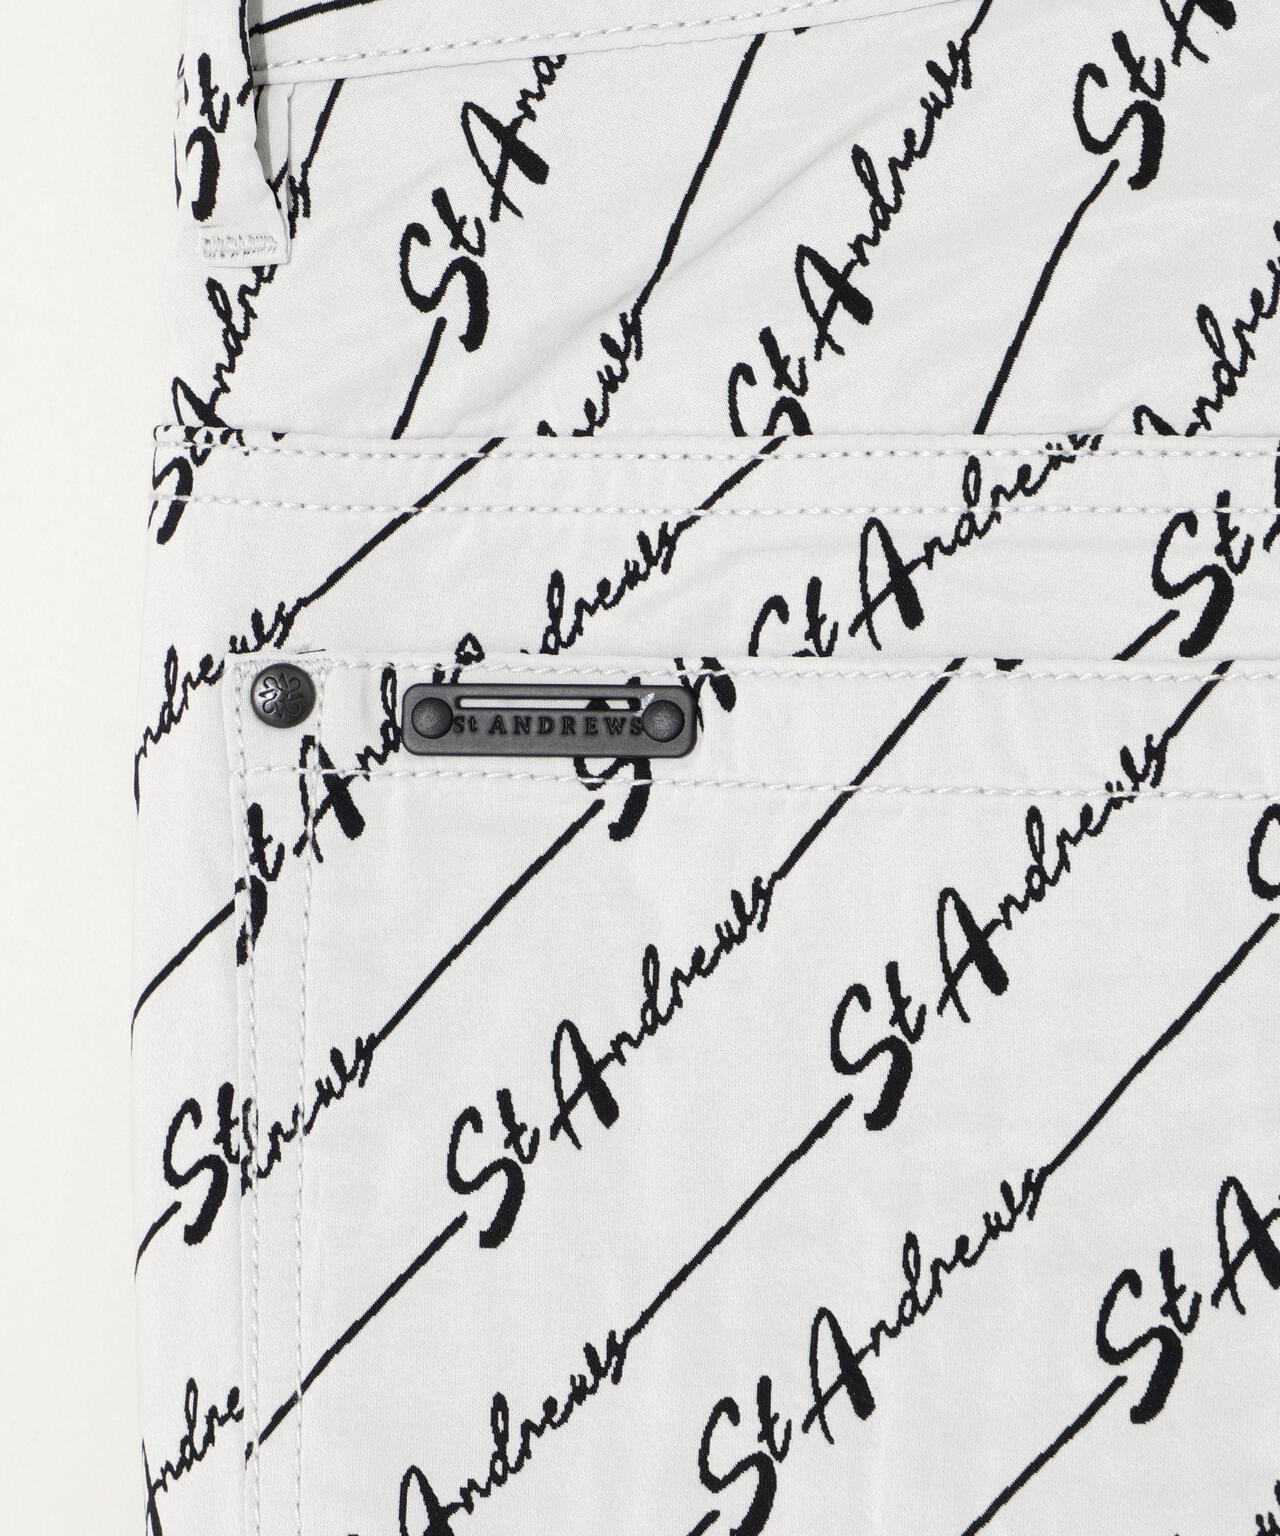 St
St A
St Andrews
St
St Andrews
St Andrews
St Andrews
St
St ANDREWS
St Andrews
St Andrews
St Andrews
St Andrews
St
St A
Andrews